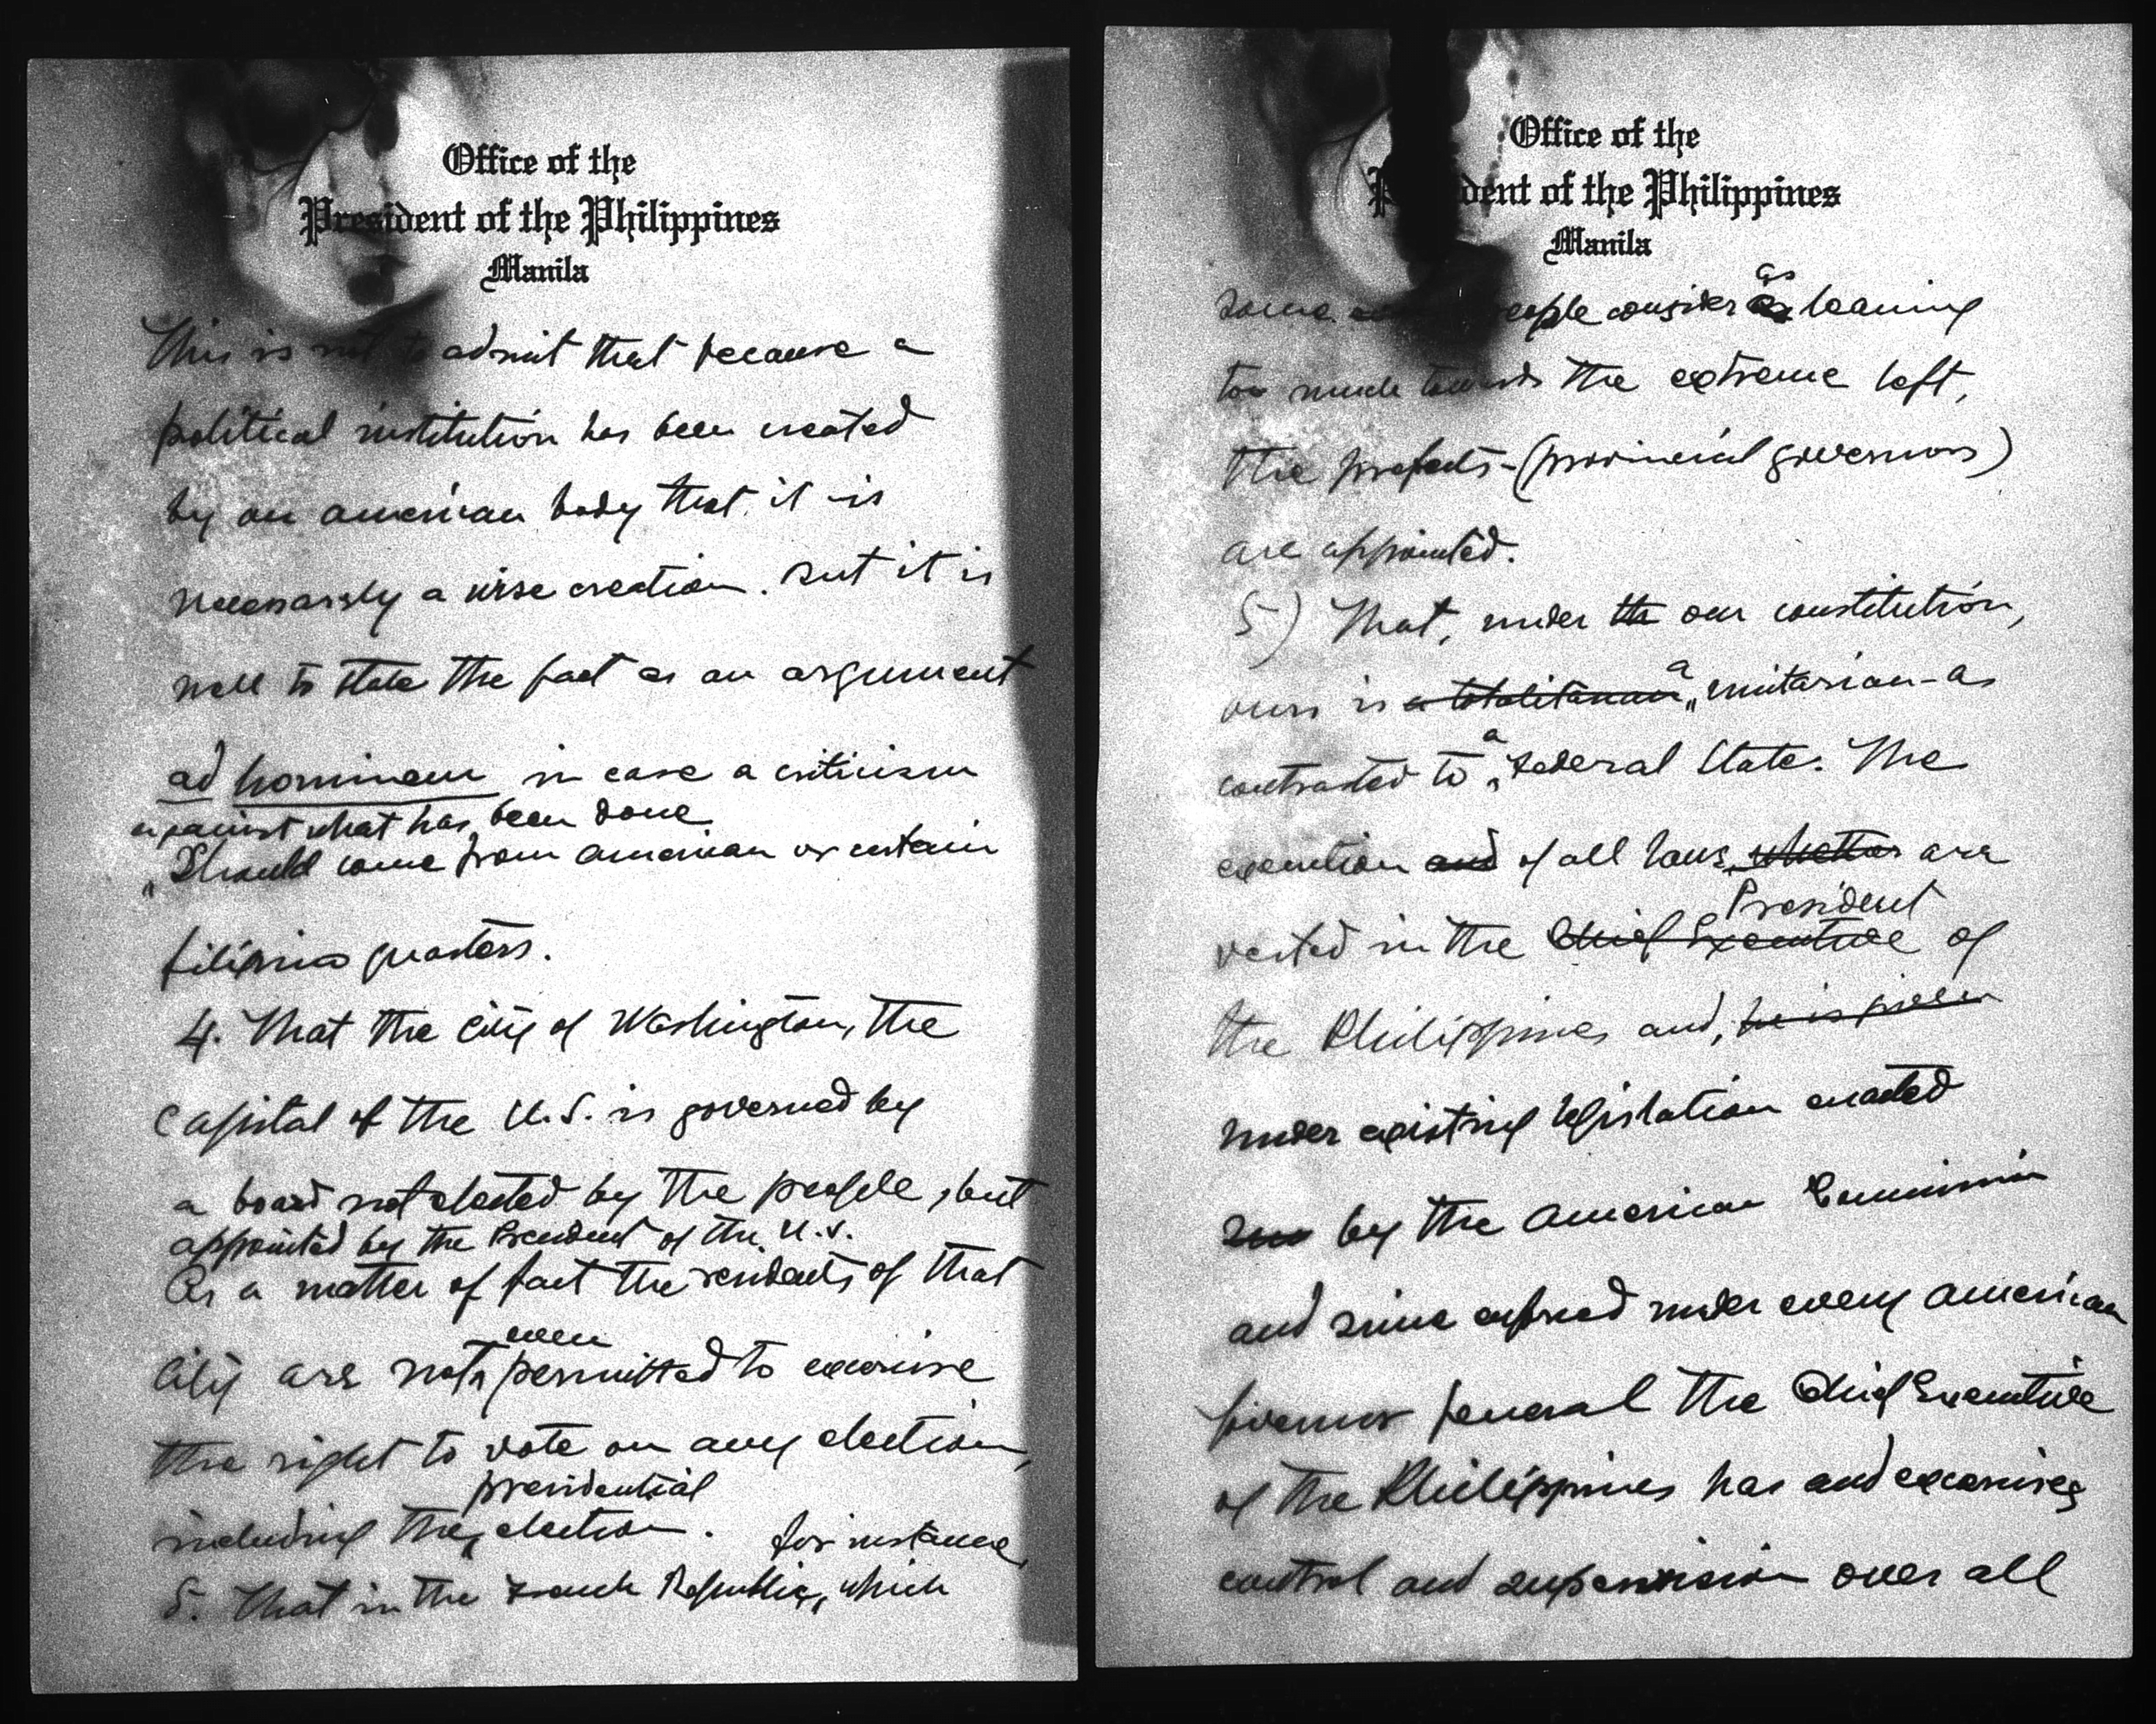 Office of the
President of the Philippines
Manila
This is not to admit that because a
political institution has been created
by an american body that it is
necessarily a wise creation. But it is
well to state the fact as an argument
ad hominem in case a criticism
against what has been done
should come from american or certain
filipino quarters.
4. That the city of Washington, the
Capital of the U.S. is governed by
a board not elected by the people, but
appointed by the President of the U.S.
As a matter of fact the residents of that
city are not even permitted to exercise
the right to vote on any election,
including the presidential election.
5. That in the French Republic, for instance, which
Office of the
President of the Philippines
Manila
some people consider as leaning
too much towards the extreme left,
the prefects-(provincial governors)
are appointed.
5) That, under the our constitution,
ours is a totalitarian a unitarian-as
contrasted to a Federal State. The
execution and of all laws, whether are
vested in the Chief Executive President of
the Philippines and, he is given
under existing legislation enacted
by the American Commission
and since enforced under every American
Governor General the Chief Executive
of the Philippines has and exercises
control and supervision over all